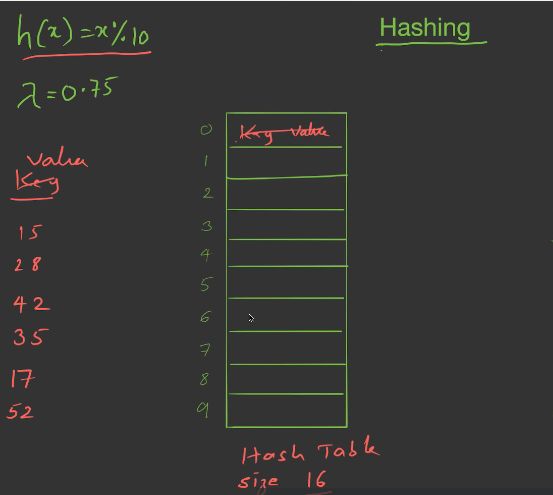 h(x)=x%10
Hashing
λ=0.75
Value
Key
15
28
42
35
17
52
0 Key Value
1
2
3
4
5
6
7
8
9
Hash Table
size 16